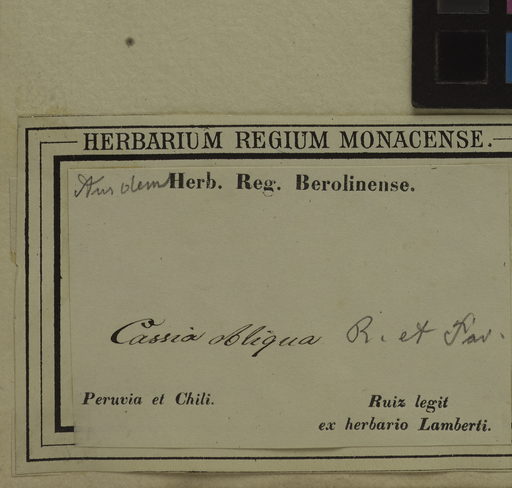 HERBARIUM REGIUM MONACENSE.
Aus dem Herb. Reg. Berolinense.
Cassia obliqua R. et Pav.
Peruvia et Chili.
Ruiz legit
ex herbario Lamberti.